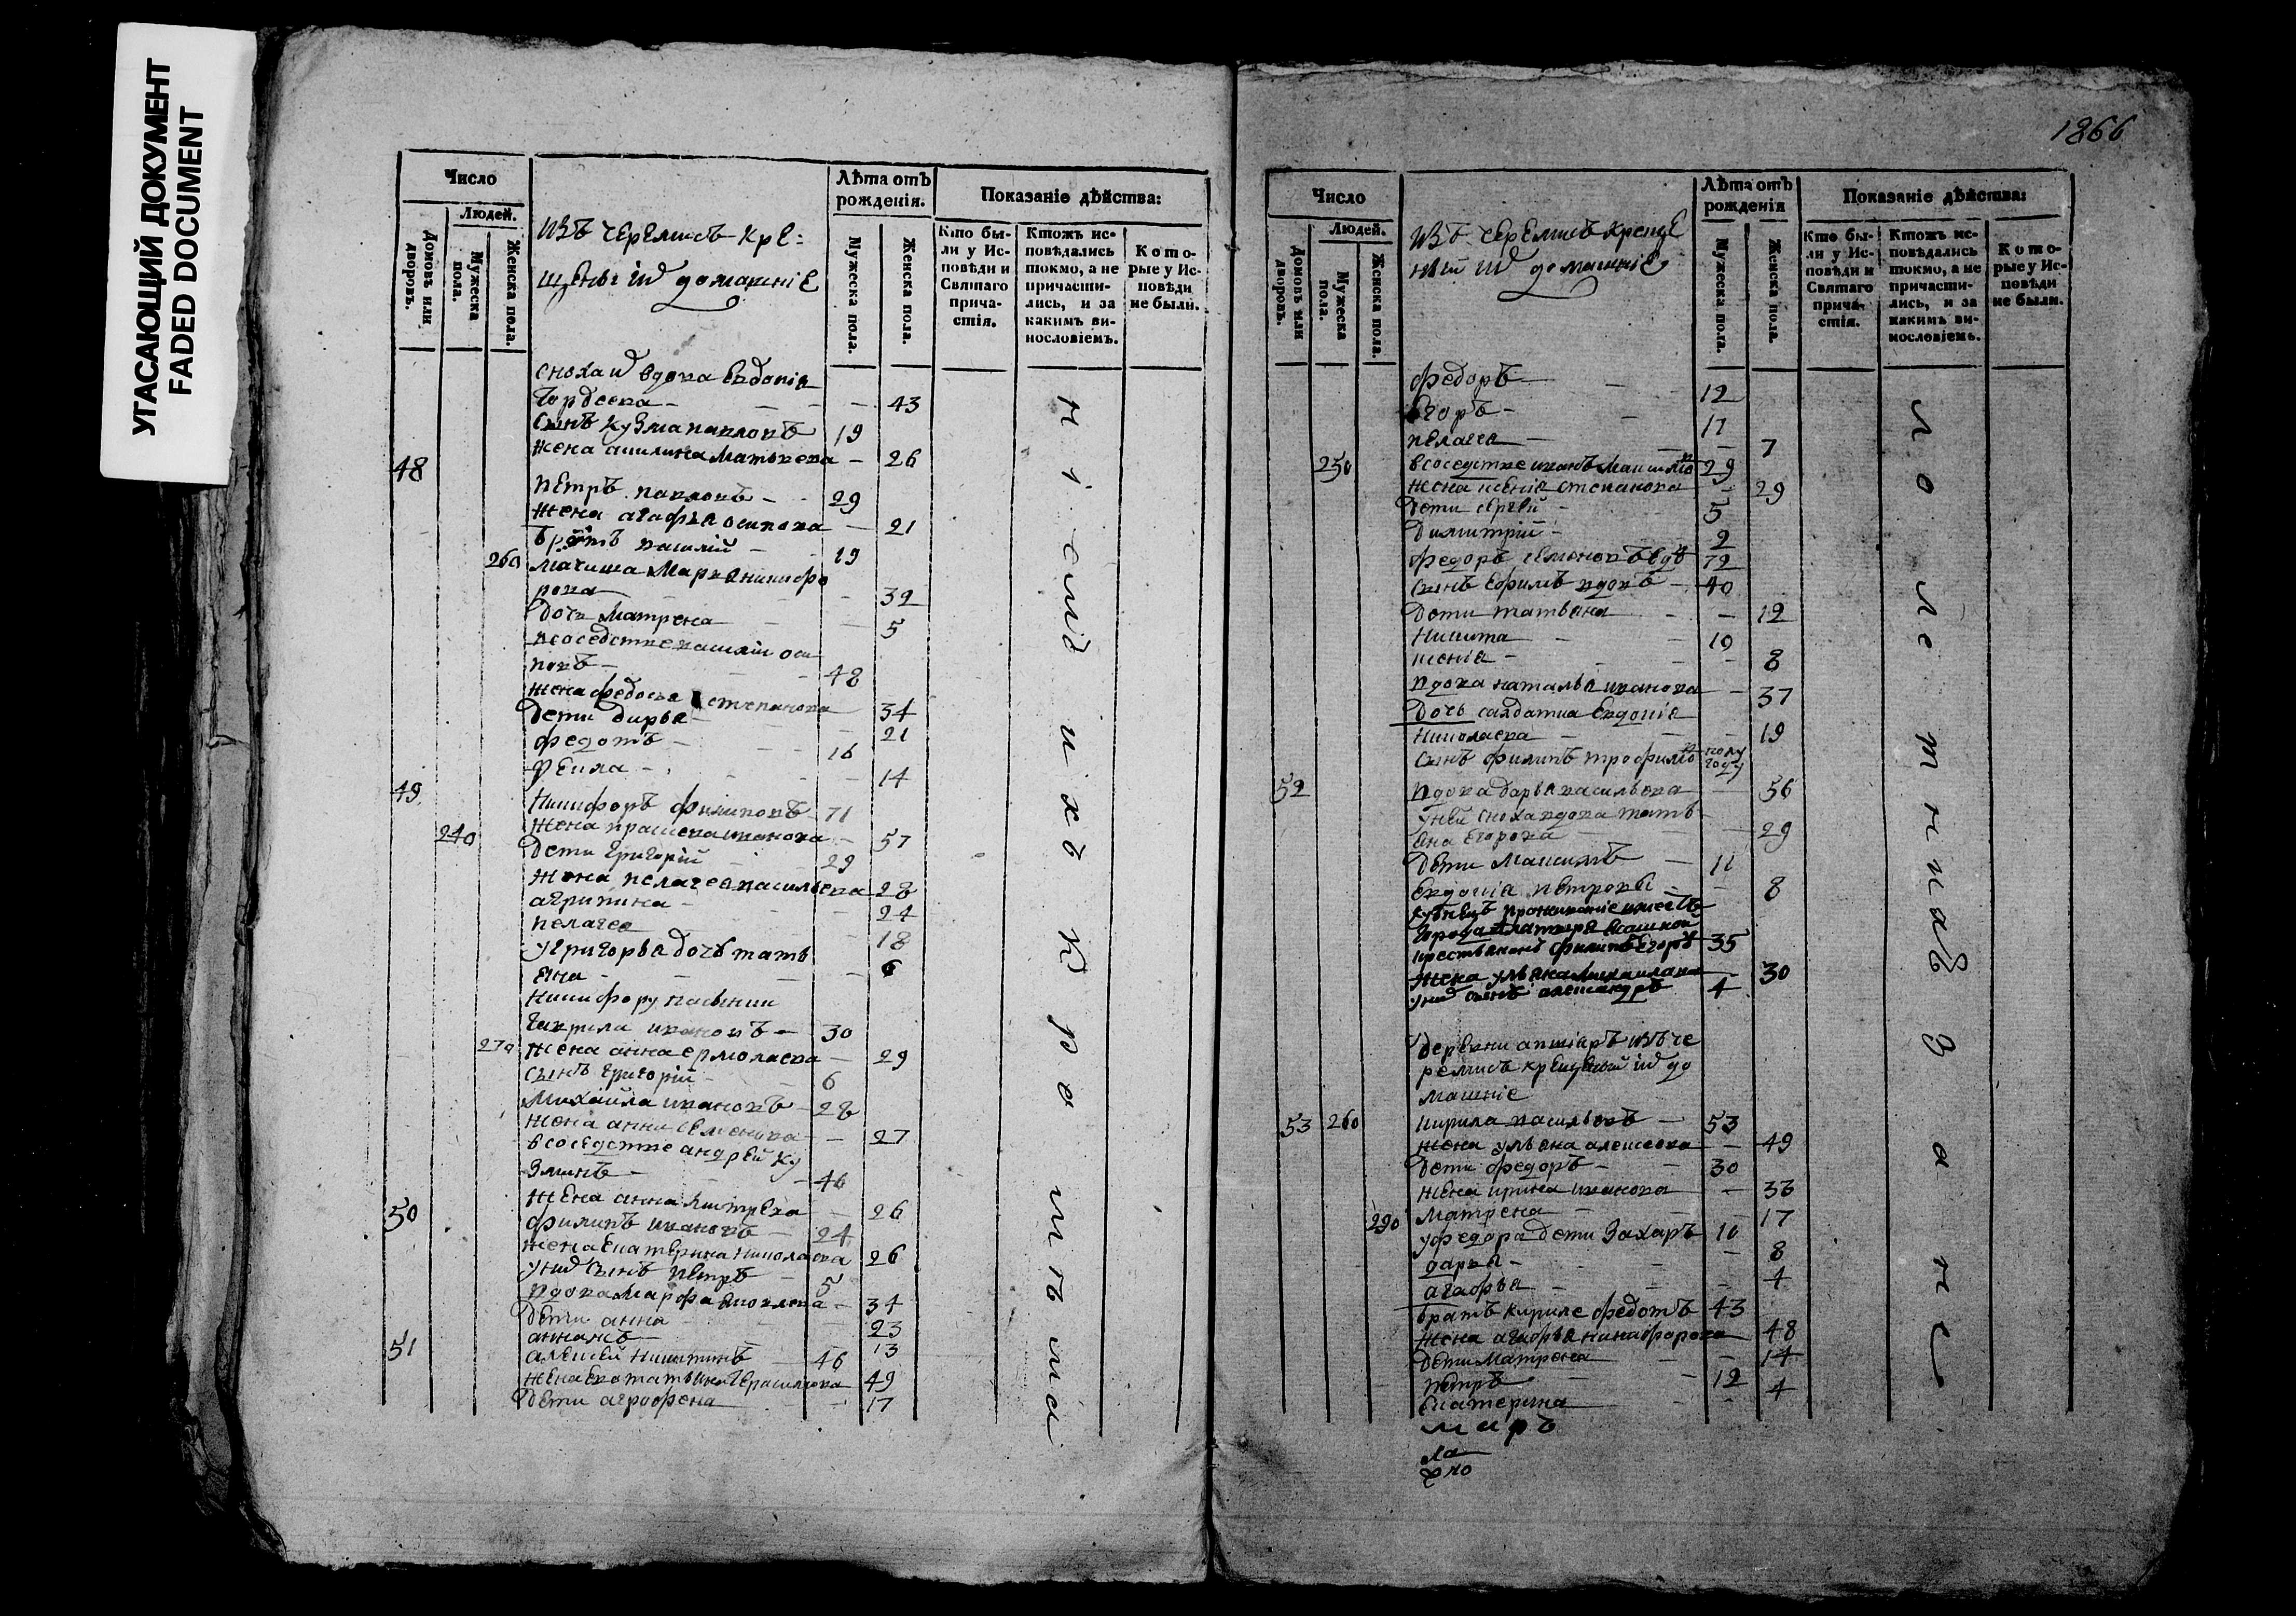 УГАСАЮЩИЙ ДОКУМЕНТ
FADED DOCUMENT
Число
Людей.
Домовъ или дворовъ.
Мужеска пола.
Женска пола.
изъ черемисъ кре=
щены іи домашніе
Лѣта отъ рожденія.
Мужеска пола.
Женска пола.
Показаніе дѣйства:
Кто бы-
ли у Ис-
повѣди и
Святаго
прича-
стія.
Ктожъ ис-
повѣдались
токмо, а не
причасти-
лись, и за
какимъ ви-
нословіемъ.
Кото-
рые у Ис-
повѣди
не были.
сноха и вдова Евдокія
Гордеева - 43
сынъ Кузма павловъ 19
жена Матвеева - 26
48
Петръ павловъ - 29
жена агафья осипова - 21
братъ василій - 19
260 мачиха Марья никифо
рова - 32
дочь Матрена - 5
всоседстве василіи оси
повъ - 48
жена федосья степанова 34
дети дарья - 21
федотъ - 16
фекла - 14
49
Никифоръ филиповъ - 71
240 жена прасковья иванова - 57
дети григорій - 29
жена пелагея васильева 28
агрипина - 24
пелагея 18
у григорья дочь тать
яна - 6
Никифору пасынки
гаврила ивановъ - 30
270 жена анна ермолаева - 29
сынъ григорій - 6
Михайла ивановъ - 28
жена анна семенова - 27
всоседстве андрей ку
зминъ - 46
жена анна дмитрева - 26
50 филипъ ивановъ - 24
жена Екатерина николаева 26
у нихъ сынъ петръ - 5
вдова Марфа яковлева - 34
дети анна 23
13
51 алексей никитинъ - 46
жена герасимова 49
дети аграфена - 17
1866
Число
Людей.
Домовъ или дворовъ.
Мужеска пола.
Женска пола.
изъ черемисъ креще
ный іи домашніе
Лѣта отъ рожденія
Мужеска пола.
Женска пола.
Показаніе дѣйства:
Кто бы-
ли у Ис-
повѣди и
Святаго
прича-
стія.
Ктожъ ис-
повѣдались
токмо, а не
причасти-
лись, и за
какимъ ви-
нословіемъ.
Кото-
рые у Ис-
повѣди
не были.
федоръ - 12
Егоръ - 11
пелагея - 7
250 всоседстве иванъ Максимо 29
жена ксенія степанова - 29
дети сергей - 5
димитрій - 2
федоръ семеновъ вдв 72
сынъ ефимъ вдовъ - 40
дети татьяна - 12
Никита - 10
ксенія - 8
вдова наталья иванова - 37
дочь салдатка Евдокія
Николаева - 19
сынъ филипъ трофимо полу
году
52 вдова дарья васильева - 56
у ней сноха вдова тать
яна Егорова - 29
дети Максимъ - 11
евдокія петровы - 8
крестьянинъ филипъ Егоровъ 35
жена ульяна михаилова - 30
у нихъ сынъ александръ 4
деревни апшіаръ изъ че
ремисъ крещеный іи до
машніе
53 260 кирила васильевъ - 53
жена ульяна алексеева - 49
дети федоръ - 30
жена ирина иванова - 33
Матрена - 17
290 у федора дети Захаръ 10
дарья - 8
агафья - 4
братъ кириле федотъ 43
жена агафья никифорова 48
дети Матрена - 14
петръ - 12
Екатерина - 4